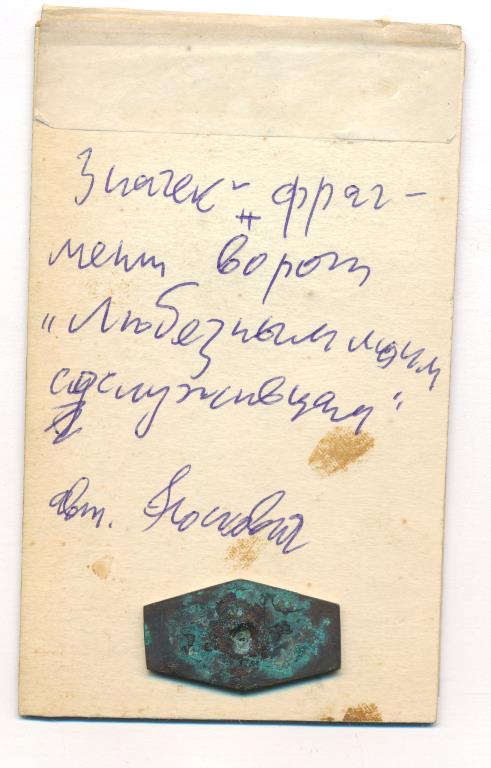 Значек - фраг-
мент ворот
"Любезным моим
сослуживцам"
авт.